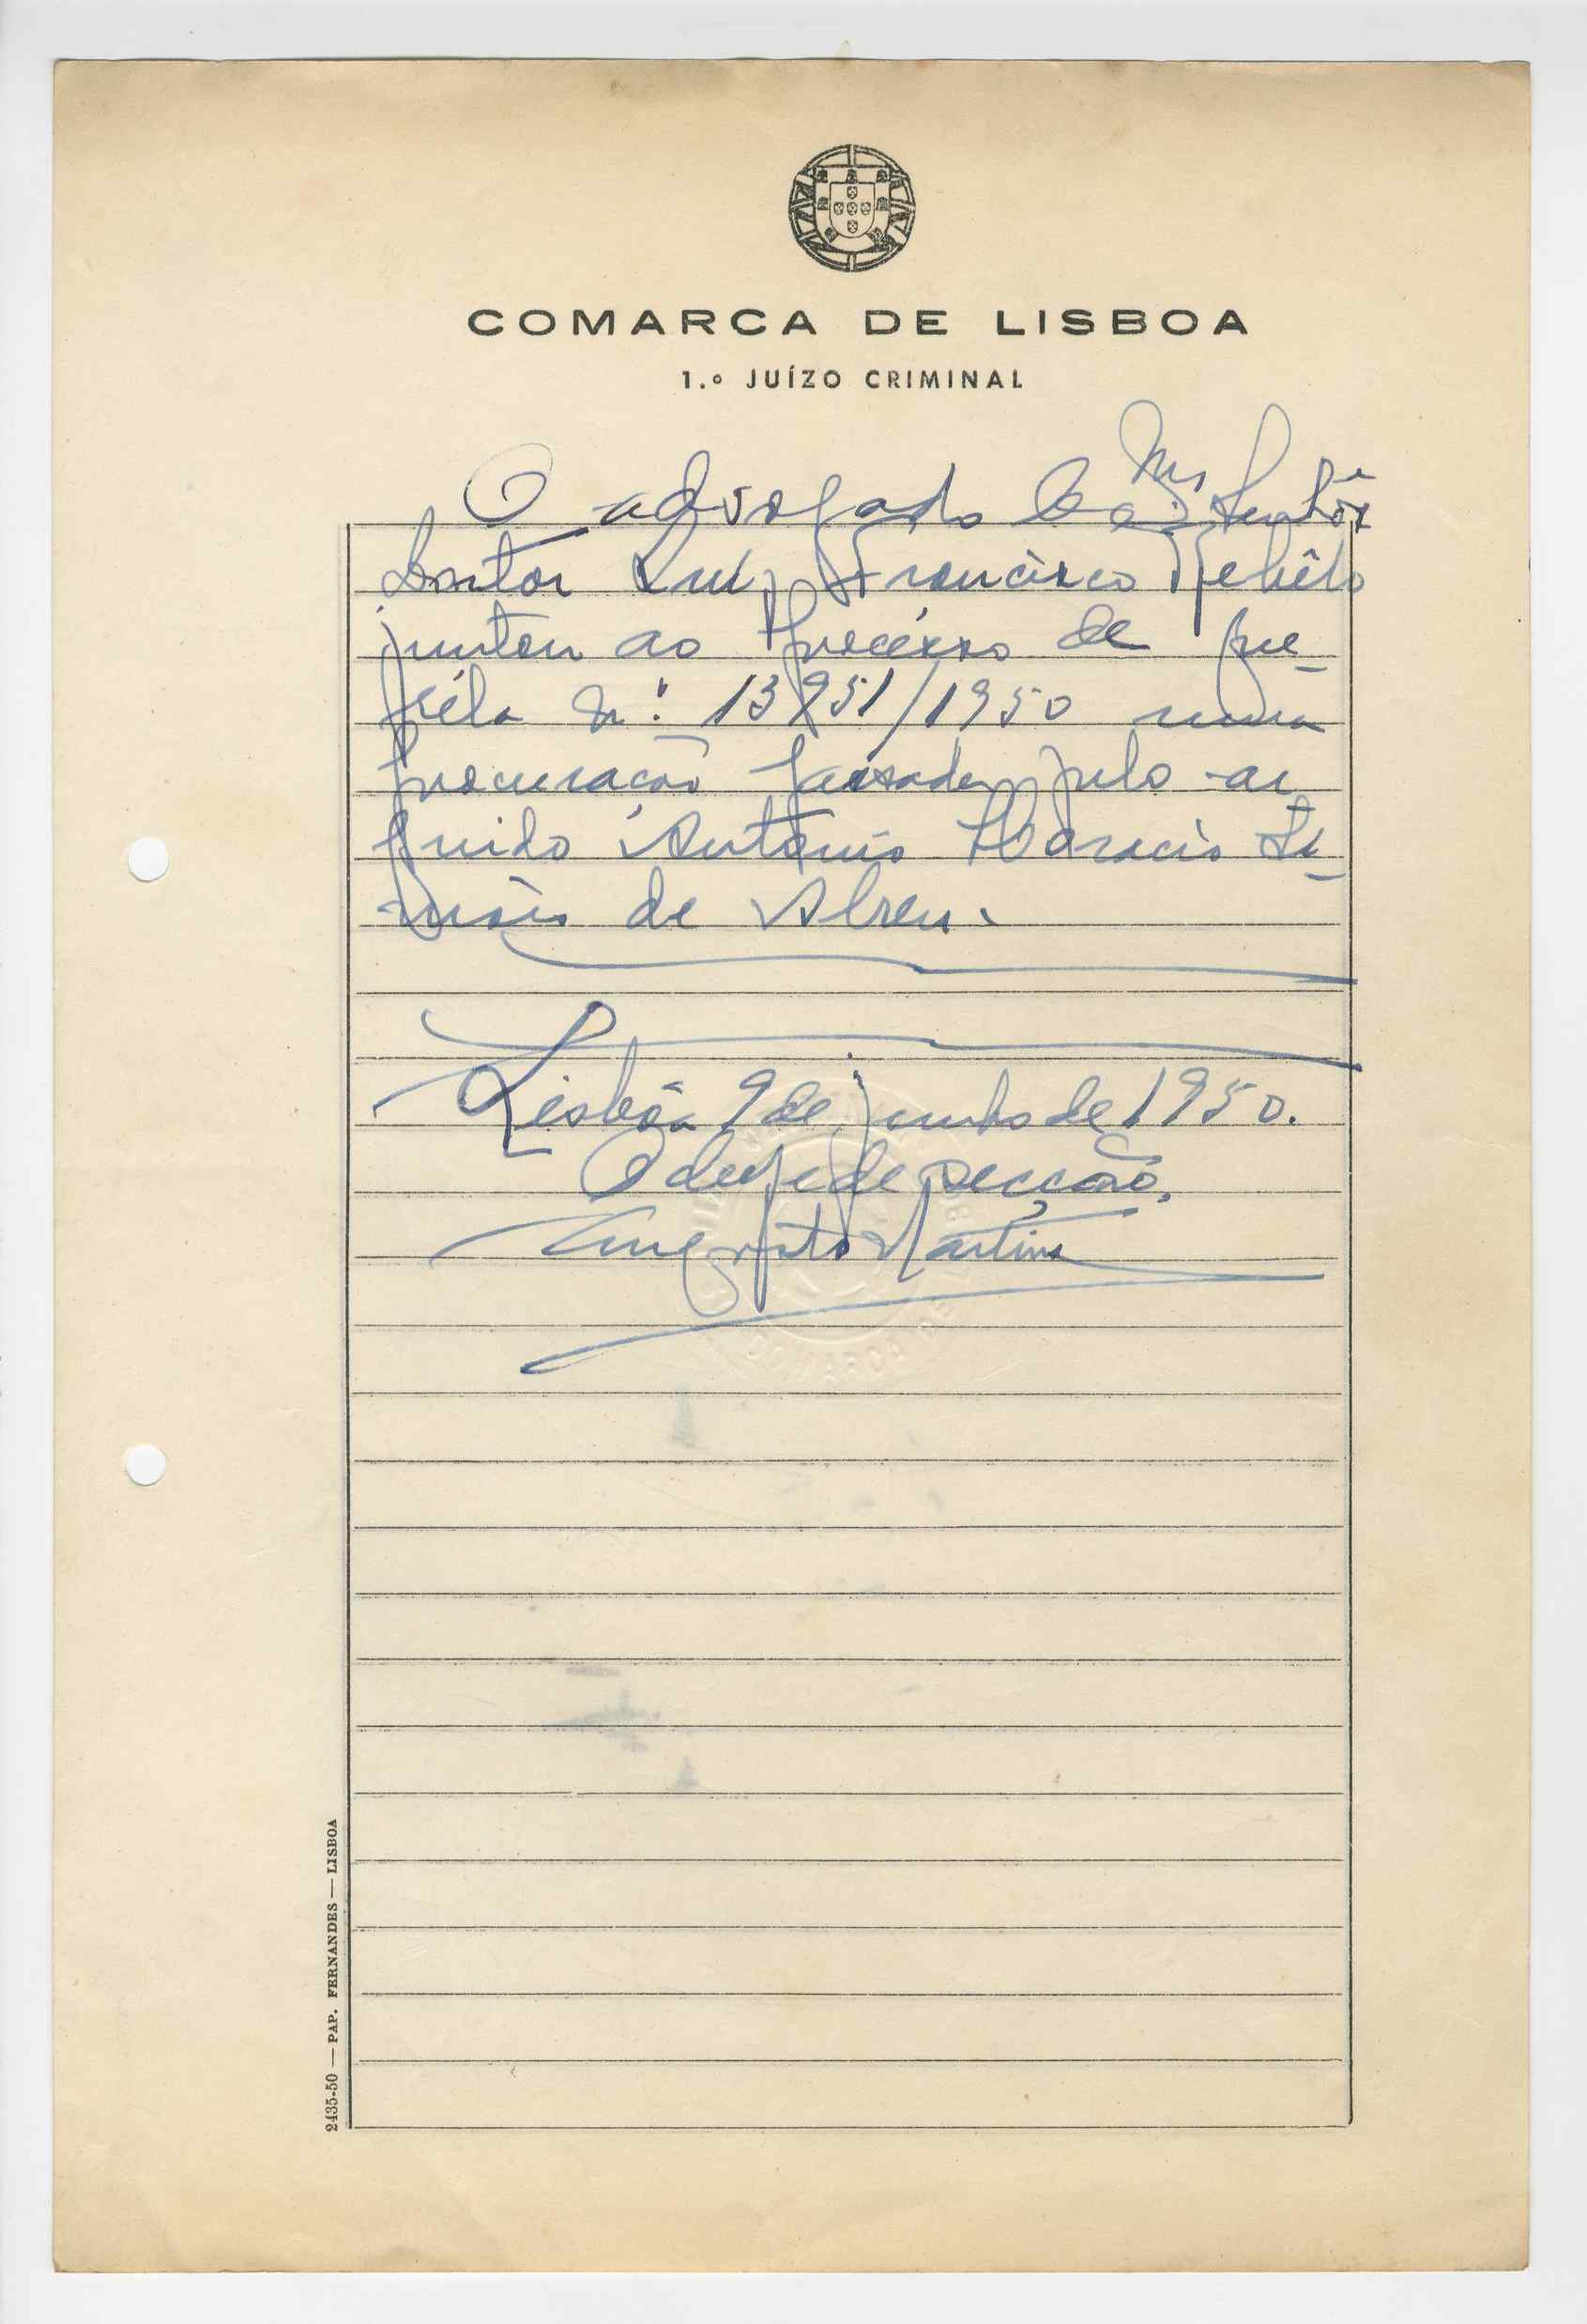 COMARCA DE LISBOA
1.º JUÍZO CRIMINAL
O advogado Ex.mo Senhôr
Doutor Luiz Francisco Rebêlo
juntou ao procésso de que-
réla n.º 13951/1950 uma
procuração passada pelo ar-
guido António Horacio Si-
mões de Abreu.
Lisbôa 9 de junho de 1950.
O chefe de secção,
Augusto Martins
2435-50 — PAP. FERNANDES — LISBOA
COMARCA DE